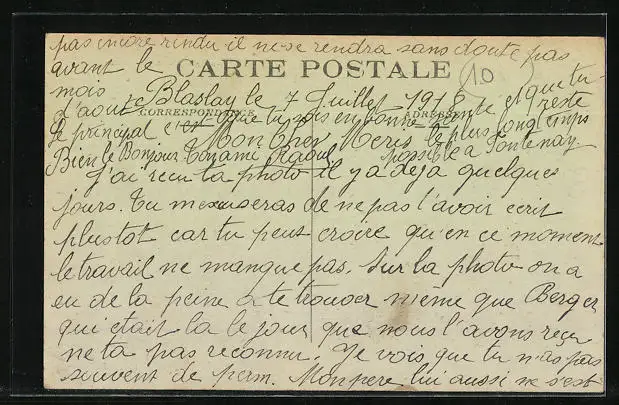 pas encore rendu il ne se rendra sans doute pas
avant le
mois
d'aout
CARTE POSTALE
10
Blaslay le 7 Juillet 1916
CORRESPONDANCE
ADRESSE
Le principal c'est que tu sois en bonne sante et que tu reste
le plus longtemps
possible a Fontenay
Bien le Bonjour Ton ami Raoul
Mon cher
J'ai recu ta photo il y a deja quelques
jours. Tu mexuseras de ne pas l'avoir ecrit
plustot car tu peut croire qu'en ce moment
le travail ne manque pas. Sur la photo on a
eu de la peine a te trouver meme que Berger
qui etait la le jour que nous l'avons recu
ne ta pas reconnu. Je vois que tu n'as pas
souvent de perm. Mon pere lui aussi ne s'est